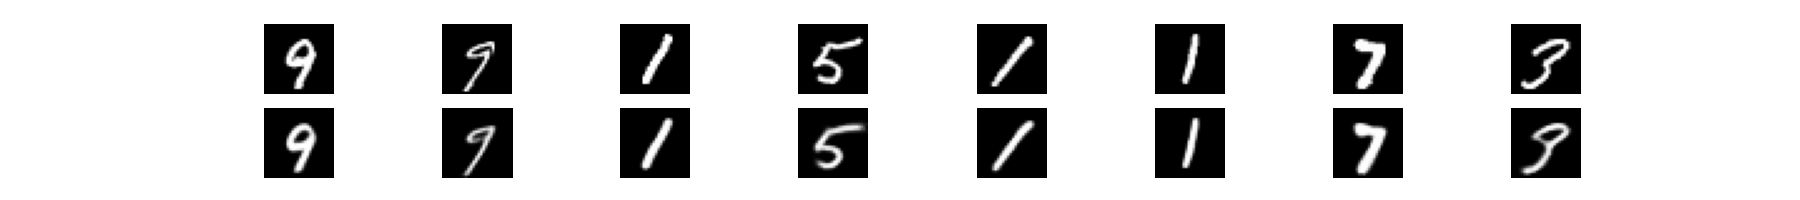 9 9 1 5 1 1 7 3
9 9 1 5 1 1 7